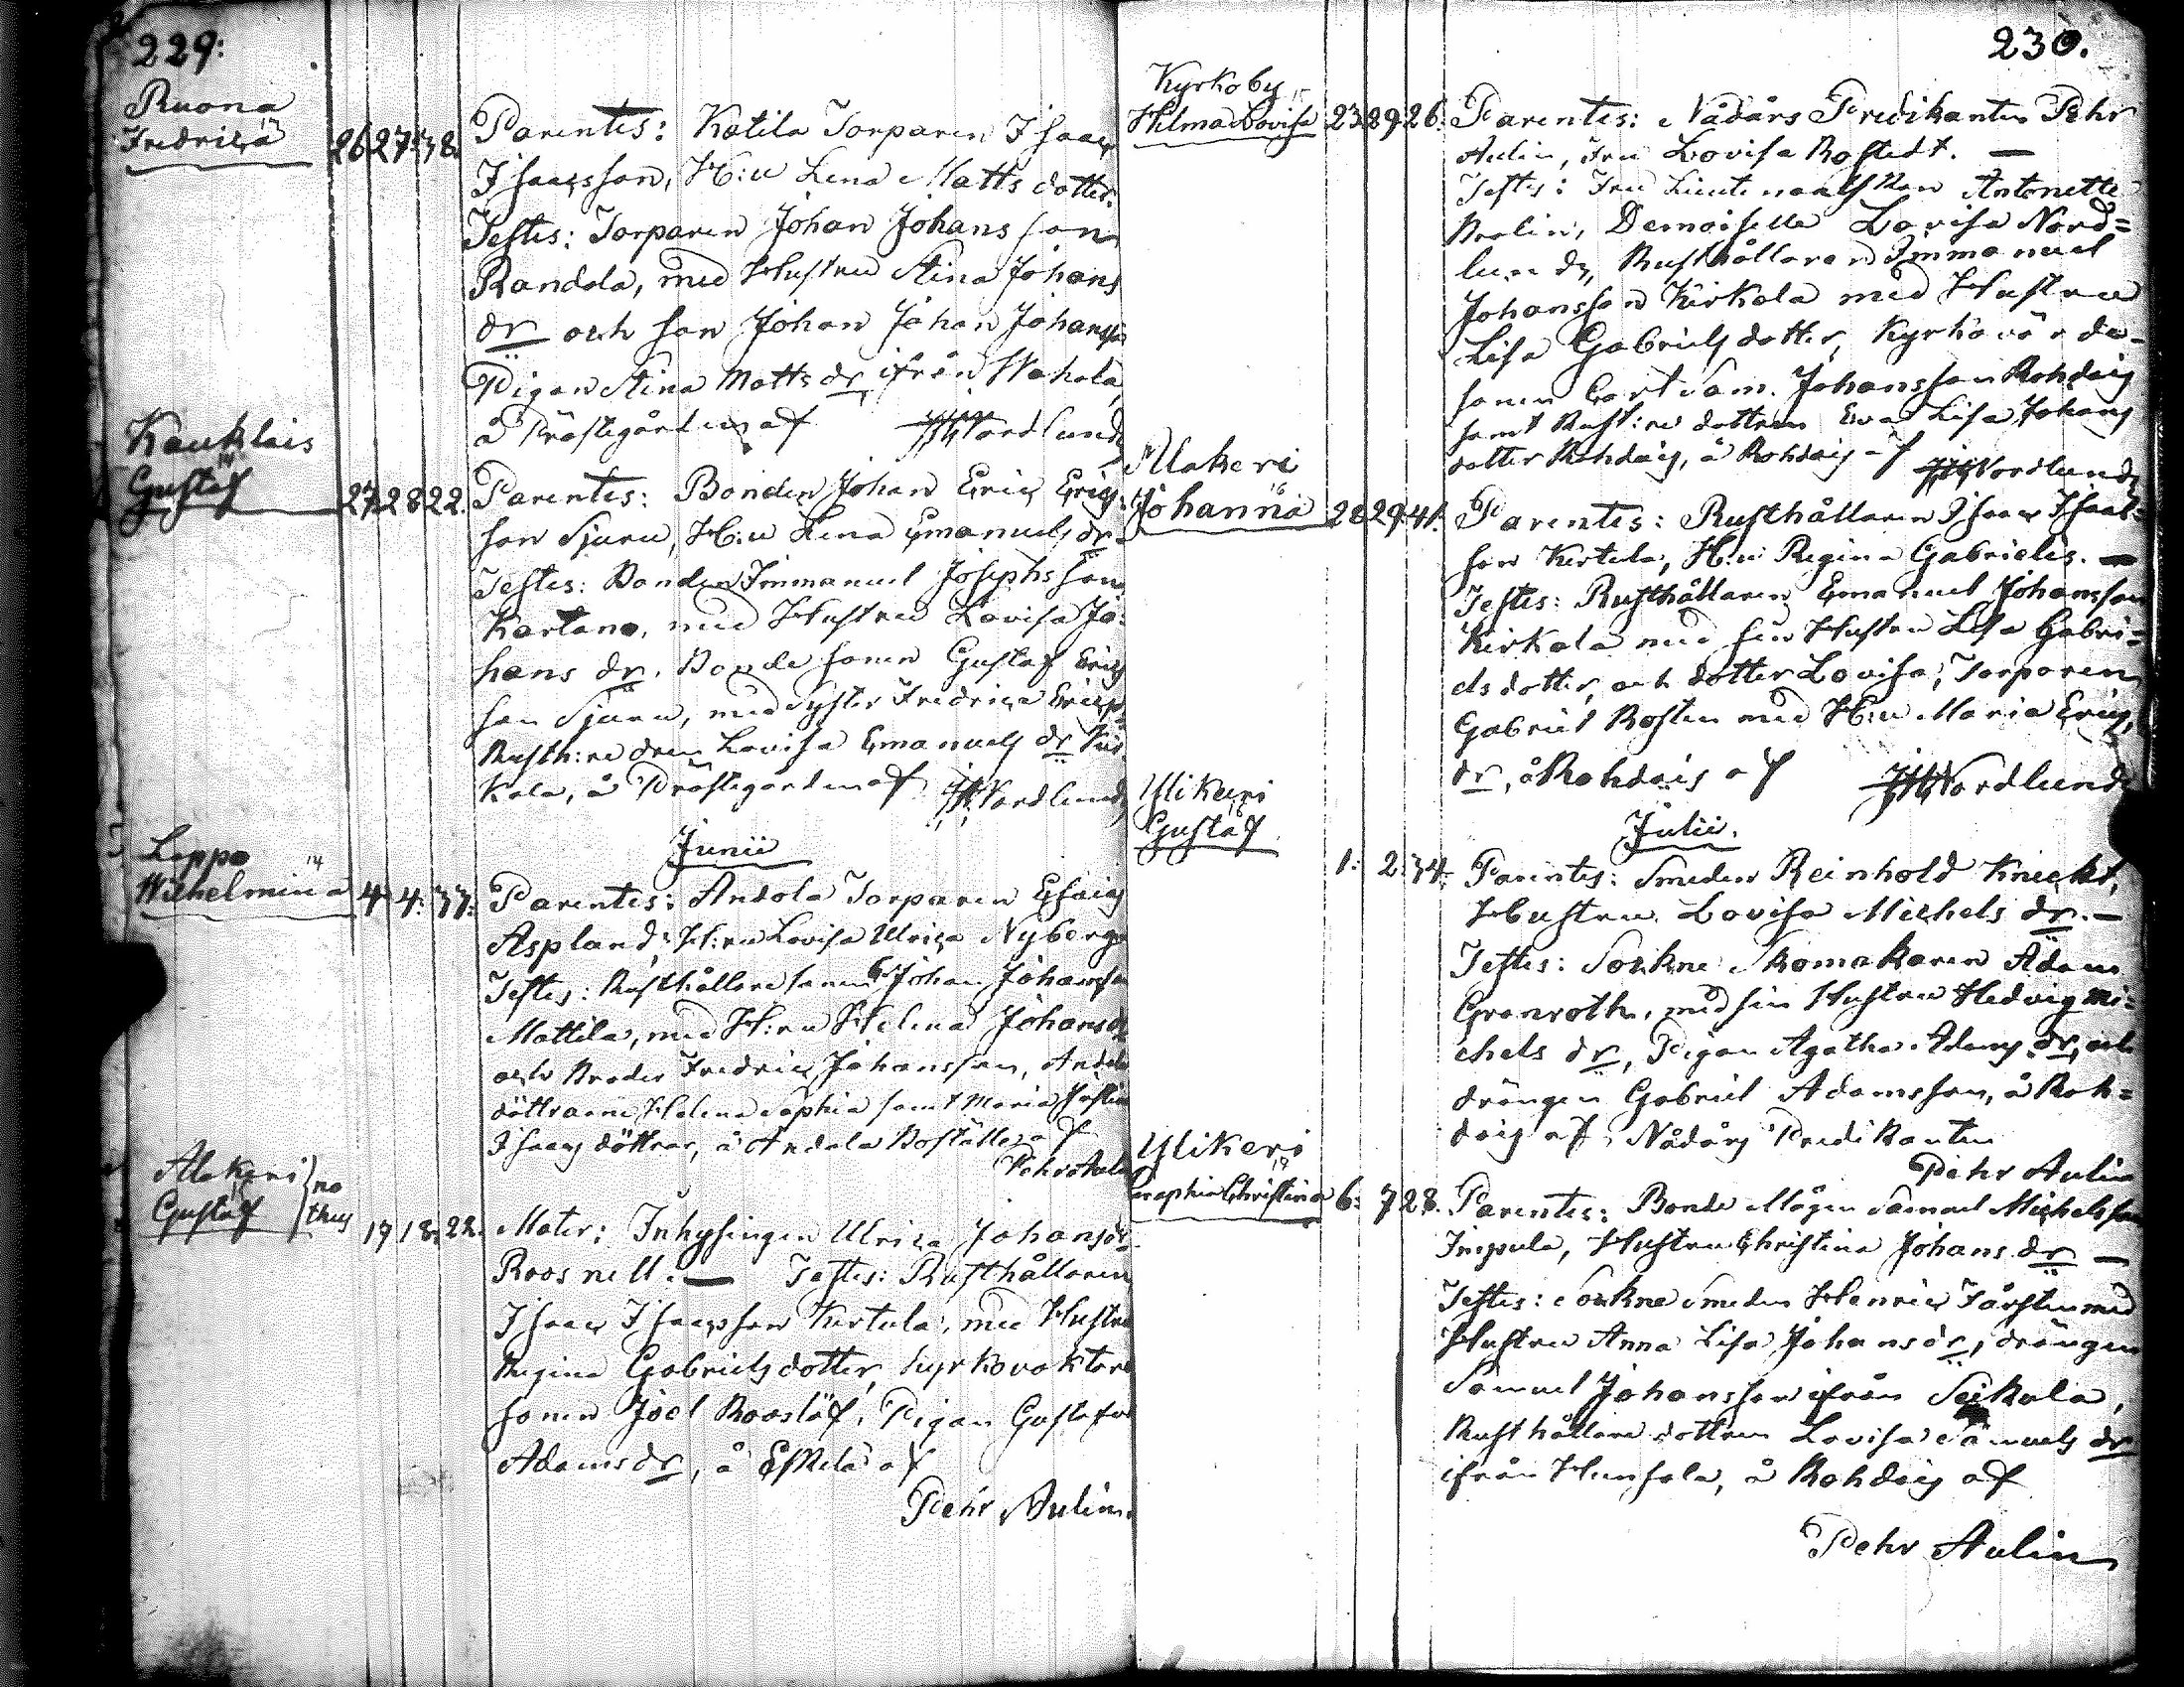 229:
Ruona
Fredrica
26 27 38.
Parentes: Katila Torparen Isaac
Isaacsson, H:u Lena Matts dotter.
Testes: Torparen Johan Johansson
Randala, med Hustru Stina Johans
dr och son Johan Johan Johansson
Pigan Stina Matts dr ifrån Wahala,
å Prästegården af Nordlund
Kauklais
Gustaf
27 28 22.
Parentes: Bonden Johan Eric Erics
son Sjuru, H:u Lena Emanuels dr
Testes: Bonden Immanuel Josephsson
Kartano, med Hustru Lovisa Jo:
hans dr. Bonde sonen Gustaf Erics
son Sjuru, med Syster Fredrica Erics
Rusth:re dren Lovisa Emanuels dr Kir
kala, å Prästegården af Nordlund
Junii
Leppe
14
Wilhelmina
4. 4: 37:
Parentes: Andola Torparen Esaias
Aspland, H:ru Lovisa Ulrica Nyberg
Testes: Rusthållare sonen Johan Johansson
Mattila, med H:ru Helena Johans dr
och Broder Fredric Johansson, Andola
döttrarne Helena Sophia samt Maria
Isaacs döttrar, å Andola Boställe af
Pehr Aulin
Alakeri
Gustaf
no
thus
17 18. 22.
Mater: Inhysingen Ulrica Johans dr
Roosnell. — Testes: Rusthållaren
Isaac Isaacsson Kertula, med Hustru
Regina Gabriels dotter, Kyrkovaktare
sonen Joel Rooslöf, Pigan Gustafva
Adams dr, å Eskela af
Pehr Aulin.
230.
Kyrkoby
15
Hilma Lovisa
23. 89. 26.
Parentes: Nådårs Predikanten Pehr
Aulin, Fru Lovisa Rostedt. —
Testes: Fru Lieutenantskan Antonette
Brolin, Demoiselle Lovisa Nord=
lund, Rusthållaren Immanuel
Johansson Kirkala med Hustru
Lisa Gabriels dotter, Kyrkovärds
sonen Carl Sam. Johansson Rohdais
samt Rust:re dottren Eva Lisa Johans
dotter Rohdais, å Rohdais af Nordlund
Alakeri
16
Johanna
28 29. 41.
Parentes: Rusthållaren Isaac Isaac=
son Kertula, H:u Regina Gabrielis. —
Testes: Rusthållaren Emanuel Johansson
Kirkala med sin Hustru Lisa Gabri=
els dotter, och dotter Lovisa, Torparen
Gabriel Rosten med H:u Maria Erics
dr, å Rohdais af Nordlund
Ylikeri
Gustaf
Julii.
1: 2: 34.
Parentes: Smeden Reinhold Kneckt,
Hustru Lovisa Michels dr. —
Testes: Sockne Skomakaren Adam
Granroth, med sin Hustru Hedvig Mi=
chels dr, Pigan Agatha Adams dr, och
drängen Gabriel Adamsson, å Roh=
dais af Nådårs Predikanten
Pehr Aulin
Ylikeri
Seraphia Christina
6: 7 28.
Parentes: Bonde Mågen Samuel Michelsson
Impula, Hustru Christina Johans dr —
Testes: Sockne Smeden Henric Forsten med
Hustru Anna Lisa Johans dr, drängen
Samuel Johansson ifrån Seikala,
Rusthållare dottren Lovisa Samuels dr
ifrån Hunsala, å Rohdais af
Pehr Aulin